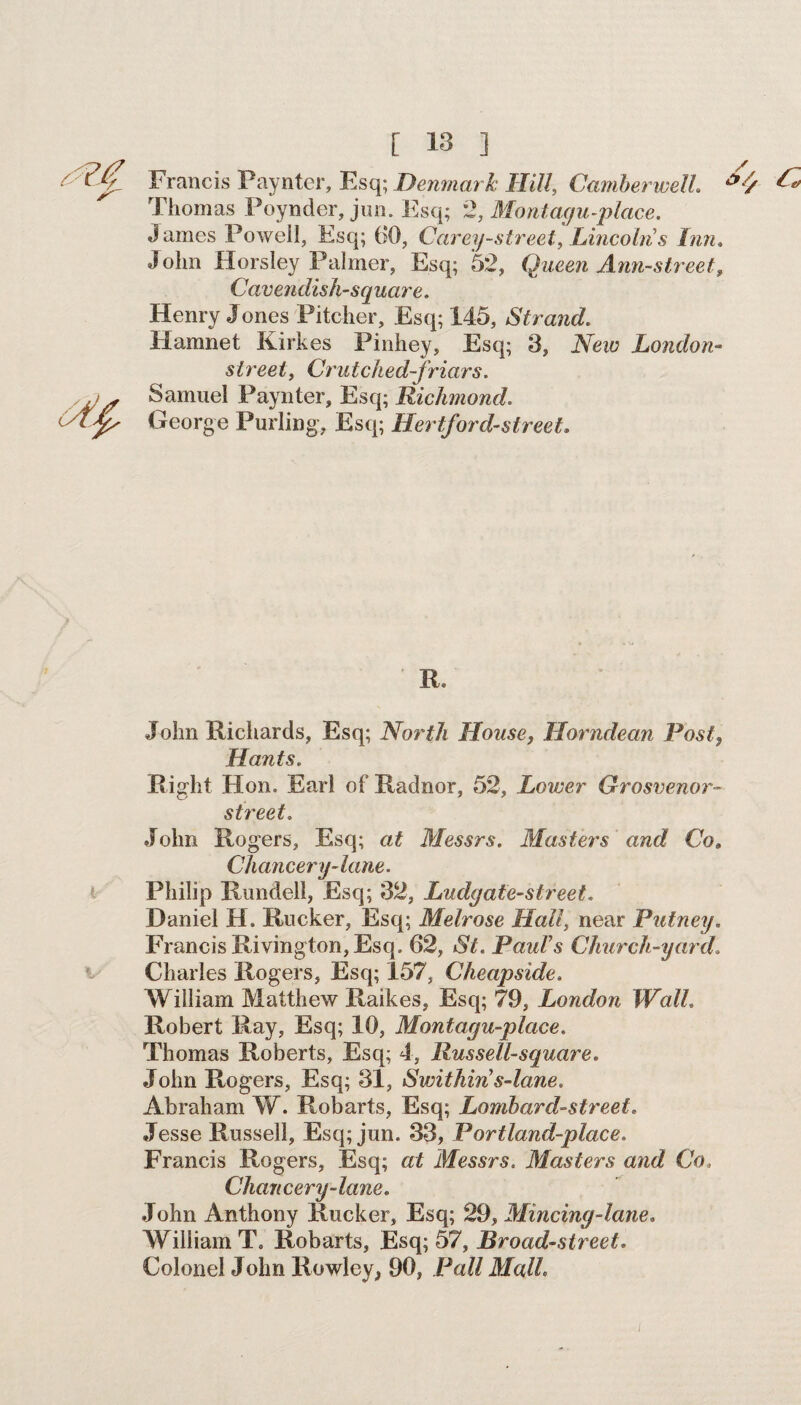 [ 13 ]
Francis Paynter, Esq; Denmark Hill, Camberwell.
Thomas Poynder, jun. Esq; 2, Montagu-place.
James Powell, Esq; 60, Carey-street, Lincoln's Inn.
John Horsley Palmer, Esq; 52, Queen Ann-street,
Cavendish-square.
Henry Jones Pitcher, Esq; 145, Strand.
Hamnet Kirkes Pinhey, Esq; 3, New London-
street, Crutched-friars.
Samuel Paynter, Esq; Richmond.
George Purling, Esq; Hertford-street.
R.
John Richards, Esq; North House, Horndean Post,
Hants.
Right Hon. Earl of Radnor, 52, Lower Grosvenor-
street.
John Rogers, Esq; at Messrs. Masters and Co.
Chancery-lane.
Philip Rundell, Esq; 32, Ludgate-street.
Daniel H. Rucker, Esq; Melrose Hall, near Putney.
Francis Rivington, Esq. 62, St. Paul's Church-yard.
Charles Rogers, Esq; 157, Cheapside.
William Matthew Raikes, Esq; 79, London Wall.
Robert Ray, Esq; 10, Montagu-place.
Thomas Roberts, Esq; 4, Russell-square.
John Rogers, Esq; 31, Swithin's-lane.
Abraham W. Robarts, Esq; Lombard-street.
Jesse Russell, Esq; jun. 33, Portland-place.
Francis Rogers, Esq; at Messrs. Masters and Co.
Chancery-lane.
John Anthony Rucker, Esq; 29, Mincing-lane.
William T. Robarts, Esq; 57, Broad-street.
Colonel John Rowley, 90, Pall Mall.